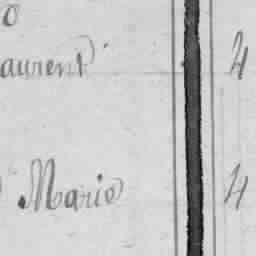 aurent 4
Marie 4